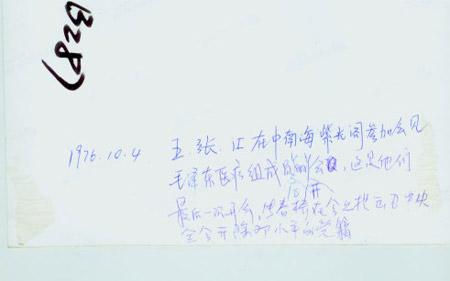 E287
1976.10.4 王.张.江在中南海紫光阁参加会见
毛泽东医疗组成员的会,这是他们
召开
最后一次开会,
全会开除邓小平的党籍